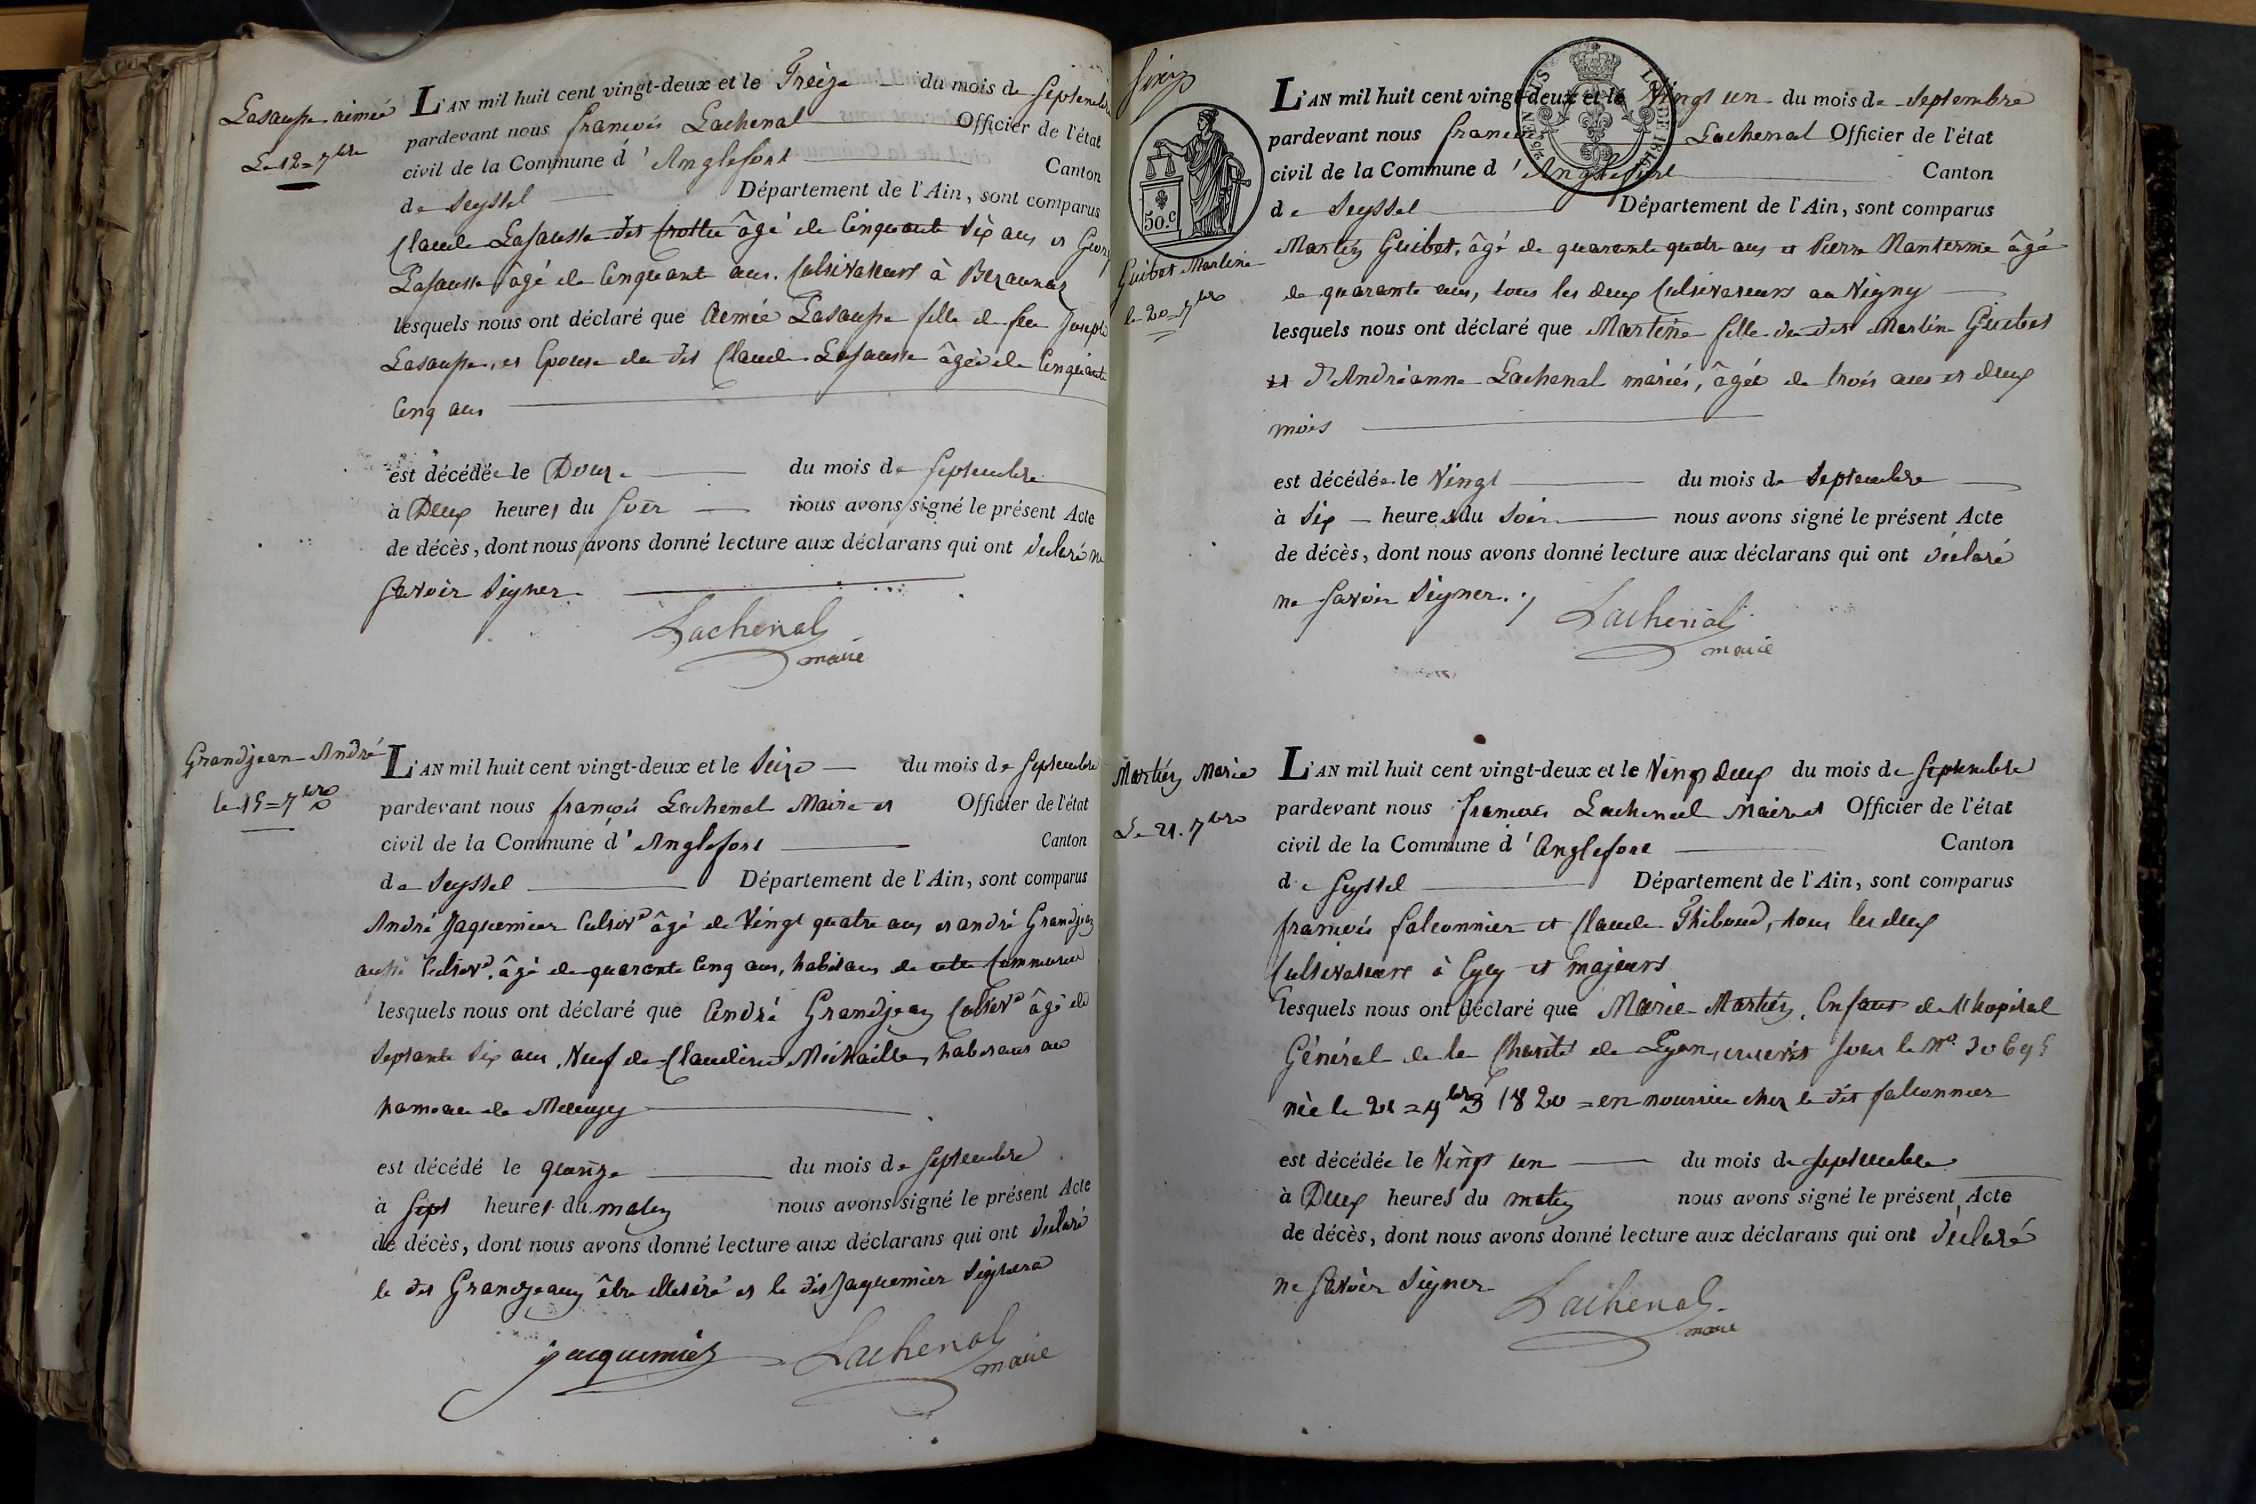 Lasausse aimée
Le 12 = 7bre
L'AN mil huit cent vingt-deux et le Treize du mois de Septembre
pardevant nous francois Lachenal Officier de l'état
civil de la Commune d'Anglefort Canton
de Seyssel Département de l'Ain, sont comparus
Claude Lasausse dit Crottu âgé de Cinquante Six ans et
Lasausse âgé de Cinquant ans. Cultivateurs à
lesquels nous ont déclaré que Aimée Lasausse fille de feu Joseph
Lasausse, et Epouse du dit Claude Lasausse âgée de Cinquante
Cinq ans
est décédée le Douze du mois de Septembre
à Deux heures du Soir nous avons signé le présent Acte
de décès, dont nous avons donné lecture aux déclarans qui ont déclaré ne
Savoir Signer
Lachenal
maire
Grandjean André
le 15 = 7bre
L'AN mil huit cent vingt-deux et le Seize du mois de Septembre
pardevant nous françois Lachenal Maire et Officier de l'état
civil de la Commune d'Anglefort Canton
de Seyssel Département de l'Ain, sont comparus
André Jaquemier Cultivr âgé de Vingt quatre ans et andré Grandjean
aussi Cultivr. âgé de quarante Cinq ans, habitans de cette Commune
lesquels nous ont déclaré que André Grandjean Cultivr âgé de
Septante Six ans, Veuf de Claudine Michaille, habitant au
hameau de
est décédé le quinze du mois de Septembre
à Sept heures du matin nous avons signé le présent Acte
de décès, dont nous avons donné lecture aux déclarans qui ont déclaré
le dit Grandjean être illetéré et le dit Jaquemier Signera
jacquemier
Lachenal
maire
50.c
Guibot Martine
le 20 7bre
L'AN mil huit cent vingt-deux et le Vingt un du mois de Septembre
pardevant nous francois Lachenal Officier de l'état
civil de la Commune d'Anglefort Canton
de Seyssel Département de l'Ain, sont comparus
Martin Guibot, âgé de quarante quatre ans et Pierre Nanterme âgé
de quarante ans, tous les deux Cultivateurs au Vigny
lesquels nous ont déclaré que Martine fille du dit Martin Guibot
et d'Andrianne Lachenal mariés, âgée de trois ans et deux
mois
est décédée le Vingt du mois de Septembre
à Six heures du Soir nous avons signé le présent Acte
de décès, dont nous avons donné lecture aux déclarans qui ont déclaré
ne Savoir Signer.
Lachenal
maire
Martin Marie
Le 21. 7bre
L'AN mil huit cent vingt-deux et le Vingt deux du mois de Septembre
pardevant nous francois Lachenal Maire et Officier de l'état
civil de la Commune d'Anglefort Canton
de Seyssel Département de l'Ain, sont comparus
francois falconnier et Claude Thiboud, tous les deux
Cultivateurs à et majeurs
lesquels nous ont déclaré que Marie Martin, Enfant de l'hopital
Général de la Charité de Lyon, sous le No. 30695
née le 21 = 1820 = en nourrice chez le dit falconnier
est décédée le Vingt un du mois de Septembre
à Deux heures du matin nous avons signé le présent Acte
de décès, dont nous avons donné lecture aux déclarans qui ont déclaré
ne Savoir Signer
Lachenal
maire